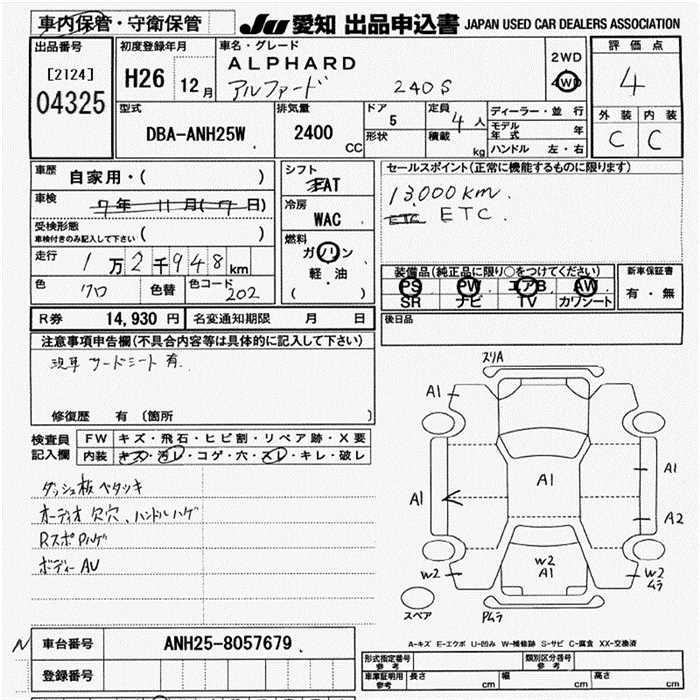 車内保管・守衛保管 JU 愛知 出品申込書 JAPAN USED CAR DEALERS ASSOCIATION
出品番号 初度登録年月 車名・グレード 2WD 評価点
[2124] H26 12月 ALPHARD 4WD 4
04325 アルファード 240S
外装 内装
型式 排気量 ドア 5 定員 4人 ディーラー・並行
DBA-ANH25W 2400 CC 形状 積載 kg モデル年式 年 C C
ハンドル 左・右
車歴 自家用・( ) シフト FAT セールスポイント(正常に機能するものに限ります)
車検 7年 11月(7日) 冷房 WAC 13,000km.
受検形態 ETC ETC.
車検付きのみ記入して下さい ( ) 燃料 ガソリン
走行 1万2千948km 軽・油 装備品(純正品に限り○をつけてください) 新車保証書
( ) PS PW エアB AW 有・無
色 クロ 色替 色コード 202 SR ナビ TV カワシート
R券 14,930円 名変通知期限 月 日 後日品
注意事項申告欄(不具合内容等は具体的に記入して下さい)
現車 サードシート有.
修復歴 有 (箇所 )
検査員記入欄 FW キズ・飛石・ヒビ割・リペア跡・X要
内装 キズ・汚レ・コゲ・穴・スレ・キレ・破レ
ダッシュ板ベタツキ
オーディオ欠穴、ハンドルハゲ
RスポPハゲ
ボディーAU
スリA
A1
A1 A1 A1
A2
W2 W2 A1 W2 ムラ
スペア Pムラ
A-キズ E-エクボ U-凹み W-補修跡 S-サビ C-腐食 XX-交換済
N 車台番号 ANH25-8057679
登録番号
形式指定番号 参考 類別区分番号 参考
車庫証明用 参考 長さ cm 幅 cm 高さ cm